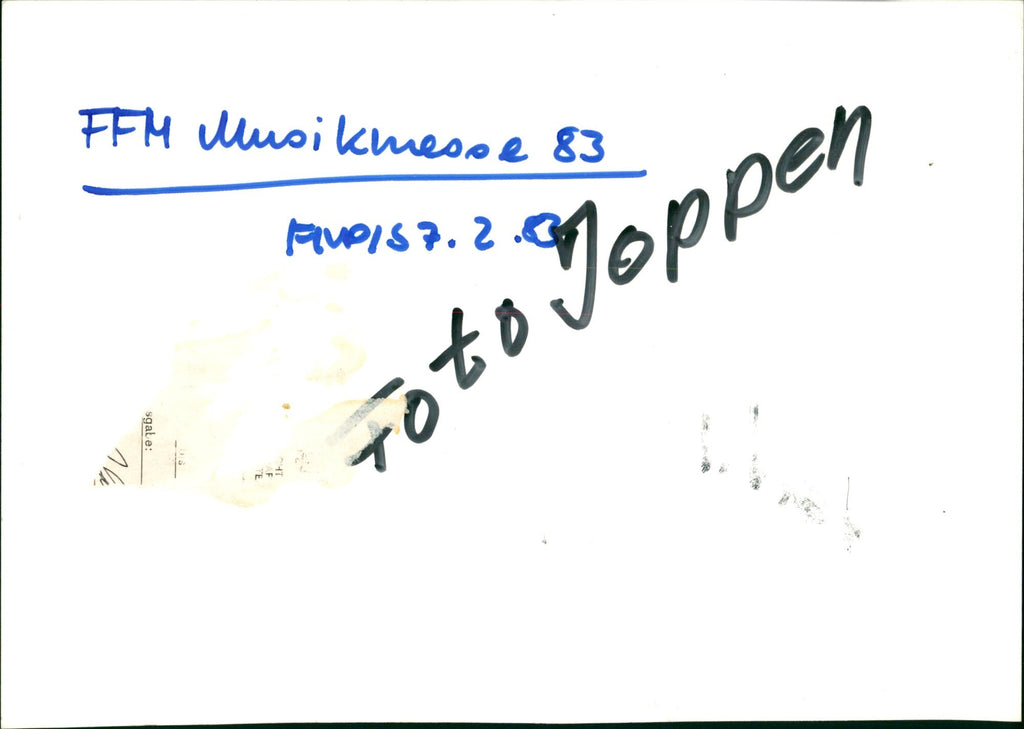 FFM Musikmesse 83
7.2.83
Foto Joppen
sgabe: